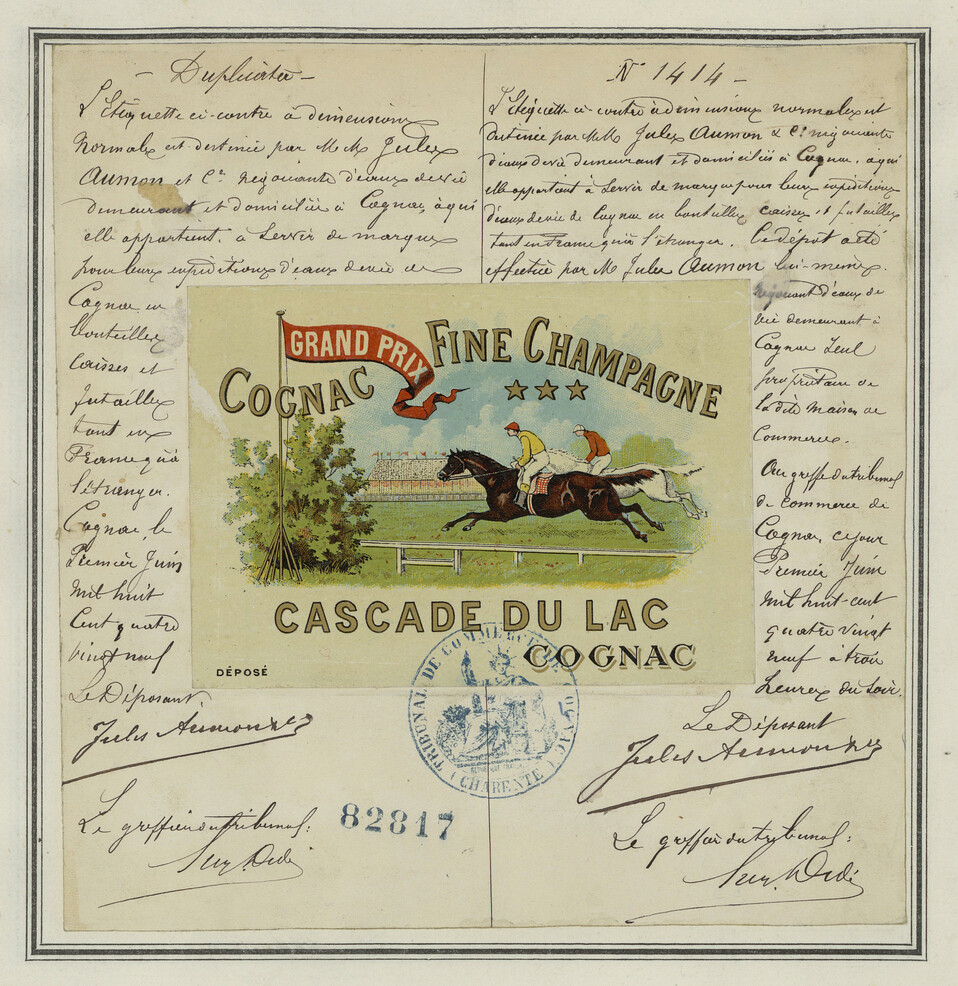 — Duplicata —
L'Etiquette ci-contre à dimensions
Normales est destinée par MM Jules
Aumon et Cie Négociants d'eaux de vie
demeurant et domiciliés à Cognac, à qui
elle appartient, à servir de marque
pour leurs expéditions d'eaux de vie de
Cognac en
bouteilles
caisses et
futailles
tant en
France qu'à
l'étranger.
Cognac, le
Premier Juin
Mil huit
Cent quatre
vingt neuf
Le Déposant
Jules Aumon & Cie
Le greffier du tribunal:
N° 1414 —
L'Etiquette ci-contre à dimensions normales est
destinée par MM Jules Aumon & Cie négociants
d'eaux de vie demeurant et domiciliés à Cognac, à qui
elle appartient à servir de marque pour leurs expéditions
d'eaux de vie de Cognac en bouteilles caisses et futailles
tant en France qu'à l'étranger. Le dépôt a été
effectué par M Jules Aumon lui-même.
Négociant d'eaux de
vie demeurant à
Cognac seul
propriétaire de
la dite maison de
Commerce.
Au greffe du tribunal
de commerce de
Cognac, ce jour
Premier Juin
Mil huit-cent
quatre vingt
neuf à trois
heures du soir.
Le Déposant
Jules Aumon & Cie
Le greffier du tribunal:
GRAND PRIX
COGNAC FINE CHAMPAGNE
CASCADE DU LAC
COGNAC
DÉPOSÉ
TRIBUNAL DE COMMERCE DE COGNAC
(CHARENTE)
82817